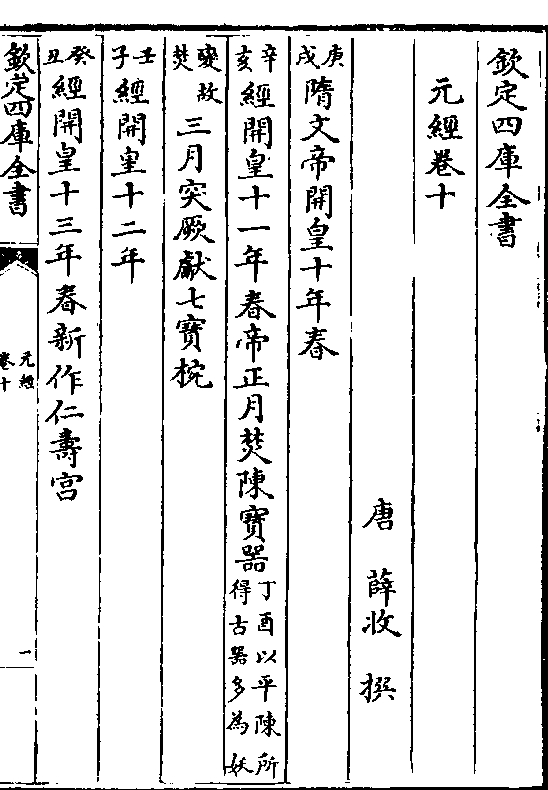 欽定四庫全書
元經卷十
唐 薛收 撰
庚戌隋文帝開皇十年春
辛亥經開皇十一年春帝正月焚陳寶器丁酉以平陳所得古器多為妖
變故焚三月突厥獻七寶椀
壬子經開皇十二年
癸丑經開皇十三年春新作仁壽宫
欽定四庫全書
元經
卷十
一